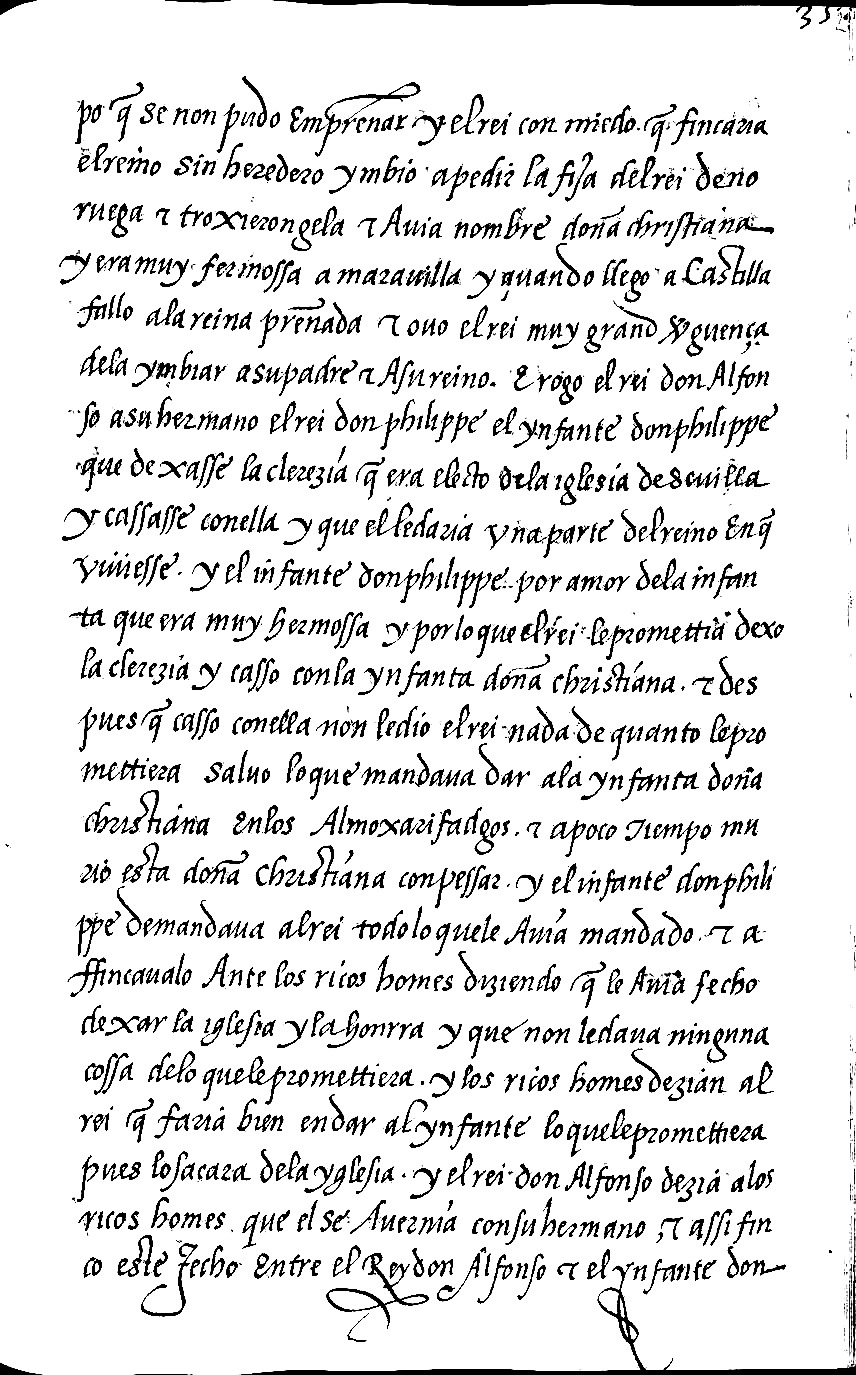 35
po q̃ se non pudo Emprẽnar y el rei con miedo. q̃ fincaria
el reino sin heredero ymbio a pedir la fija del rei de no
ruega τ troxierongela τ Auia nombre doña christiana
y era muy fermossa a marauilla y quando llego a Castilla
fallo a la reina prẽnada τ ouo el rei muy grand ṽguença
dela ymbiar a su padre τ A su reino. E rogo el rei don Alfon
so a su hermano el rei don philippe el ynfante don philippe
que dexasse la clerezia q̃ era electo de la iglesia de Sevilla
y cassasse con ella y que el le daria vna parte del reino En q̃
viuiesse. y el infante don philippe por amor de la infan
ta que era muy hermossa y por lo que el rei le promettia dexo
la clerezia y casso con la ynfanta doña christiana. τ des
pues q̃ casso con ella non le dio el rei nada de quanto le pro
mettiera salvo lo que mandaua dar a la ynfanta doña
christiana En los Almoxarifadgos. τ a poco tiempo mu
rio esta doña christiana con pessar. y el infante don phili
ppe demandaua al rei todo lo que le Auia mandado. τ a
ffincaualo Ante los ricos homes diziendo q̃ le Auia fecho
dexar la iglesia y la honrra y que non le daua ninguna
cossa de lo que le promettiera. y los ricos homes dezian al
rei q̃ faria bien en dar al ynfante lo que le promettiera
pues lo sacara de la yglesia. y el rei don Alfonso dezia a los
ricos homes que el se Avernia con su hermano, τ assi fin
co este fecho Entre el Rey don Alfonso τ el ynfante don